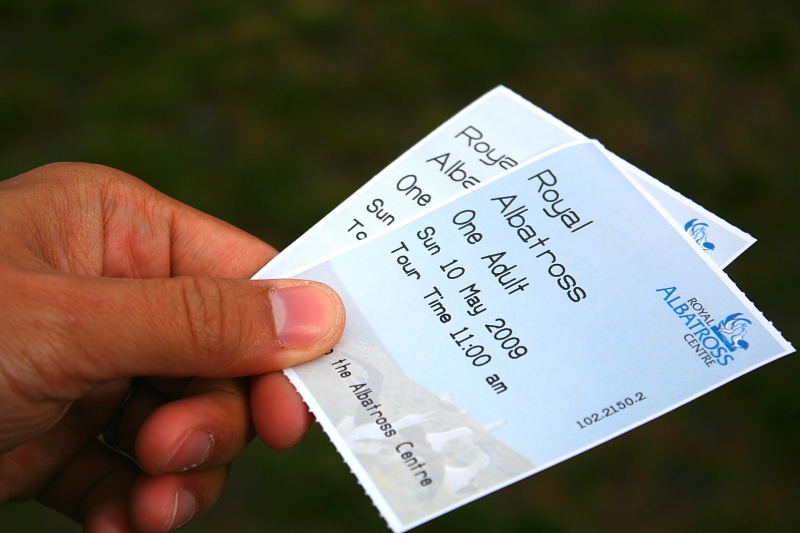 Roya
Alba
One
Sun
To
Royal
Albatross
One Adult
Sun 10 May 2009
Tour Time 11:00 am
the Albatross Centre
102.2150.2
ROYAL
ALBATROSS
CENTRE